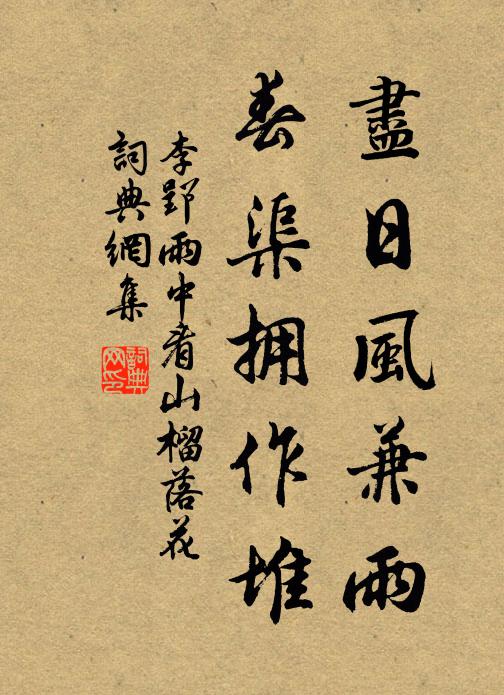 盡日風兼雨
春渠擁作堆
李郢雨中看山榴落花
詞典網集
詞典
网印